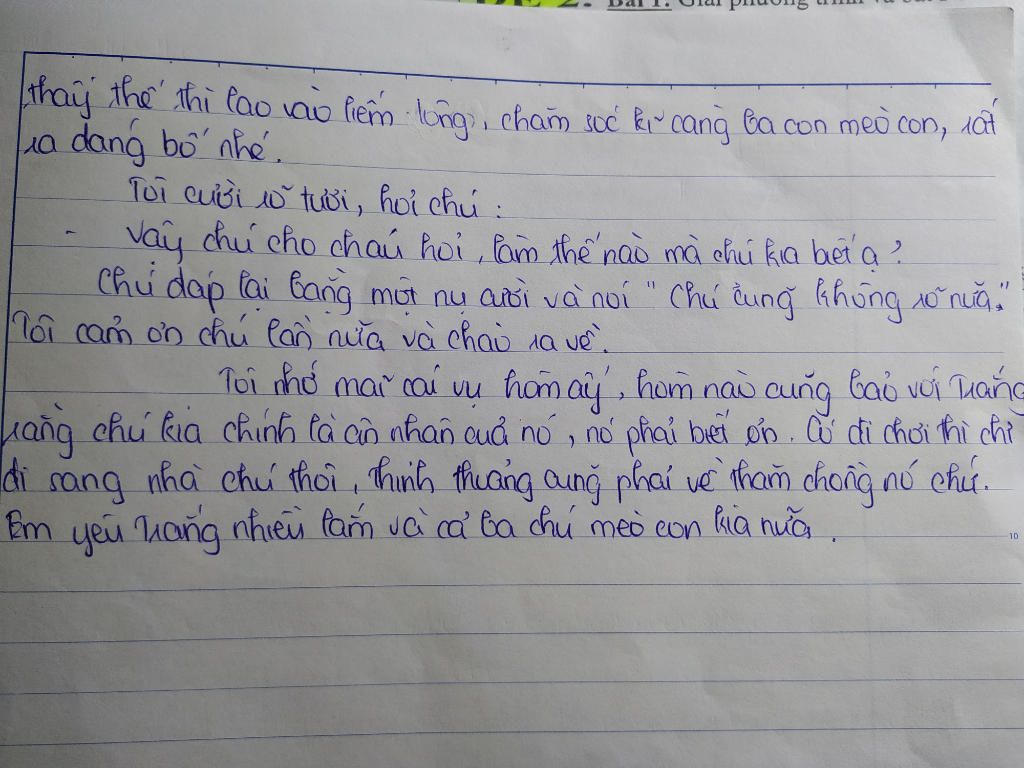 Bài 1: Giải phương trình và
thấy thế thì lao vào liếm lông, chăm sóc kĩ càng ba con mèo con, rất
ra dáng bố nhé.
Tôi cười rõ tươi, hỏi chú :
- Vậy chú cho cháu hỏi, làm thế nào mà chú kia biết ạ?
Chú đáp lại bằng một nụ cười và nói " Chú cũng không rõ nữa."
Tôi cảm ơn chú lần nữa và chào ra về.
Tôi nhớ mãi cái vụ hôm ấy, hôm nào cũng bảo với Trắng
rằng chú kia chính là ân nhân của nó, nó phải biết ơn. Cứ đi chơi thì chỉ
đi sang nhà chú thôi, thỉnh thoảng cũng phải về thăm chồng nó chứ.
Em yêu Trắng nhiều lắm và cả ba chú mèo con kia nữa.
10